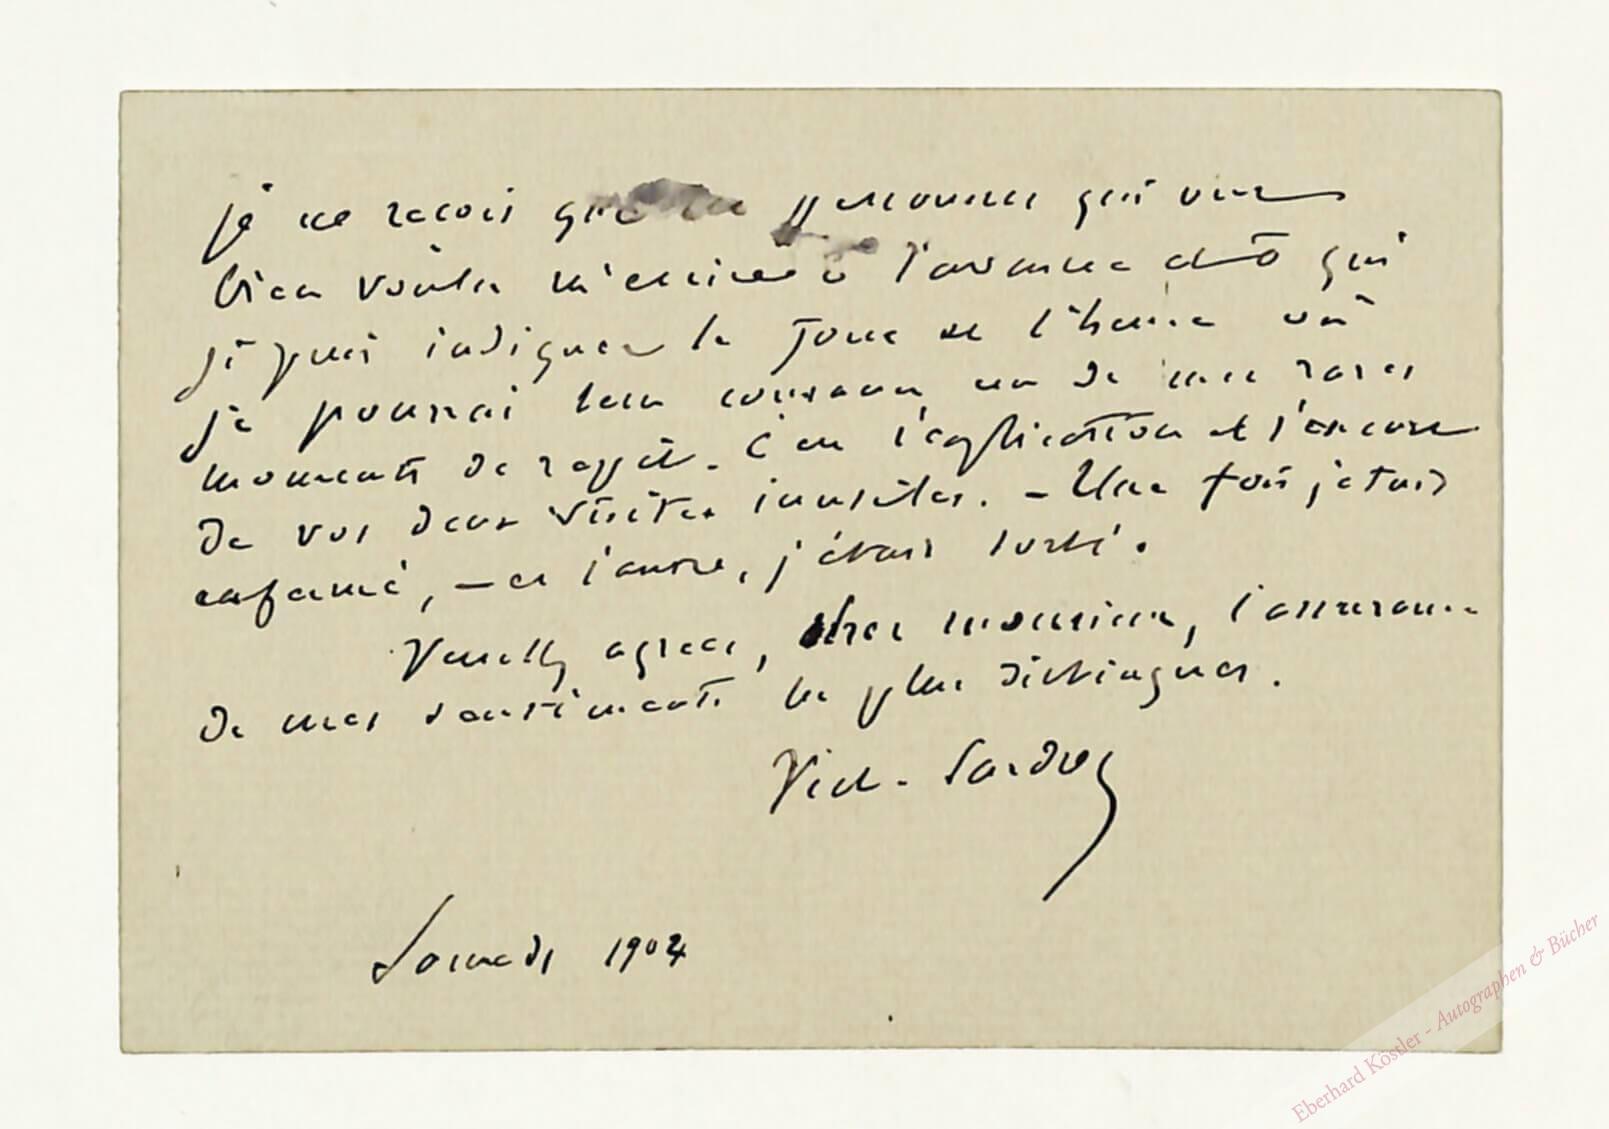 je ne reçois que les personnes qui ont
bien voulu m'écrire à l'avance et à qui
je puis indiquer le jour et l'heure où
je pourrai leur consacrer un de mes rares
moments de répit. C'est l'explication et l'excuse
de vos deux visites inutiles. – Une fois j'étais
enfermé, – et l'autre, j'étais sorti.
Veuillez agréer, cher monsieur, l'assurance
de mes sentiments les plus distingués.
Vict. Sardou
Samedi 1904
Eberhard Köstler - Autographen & Bücher